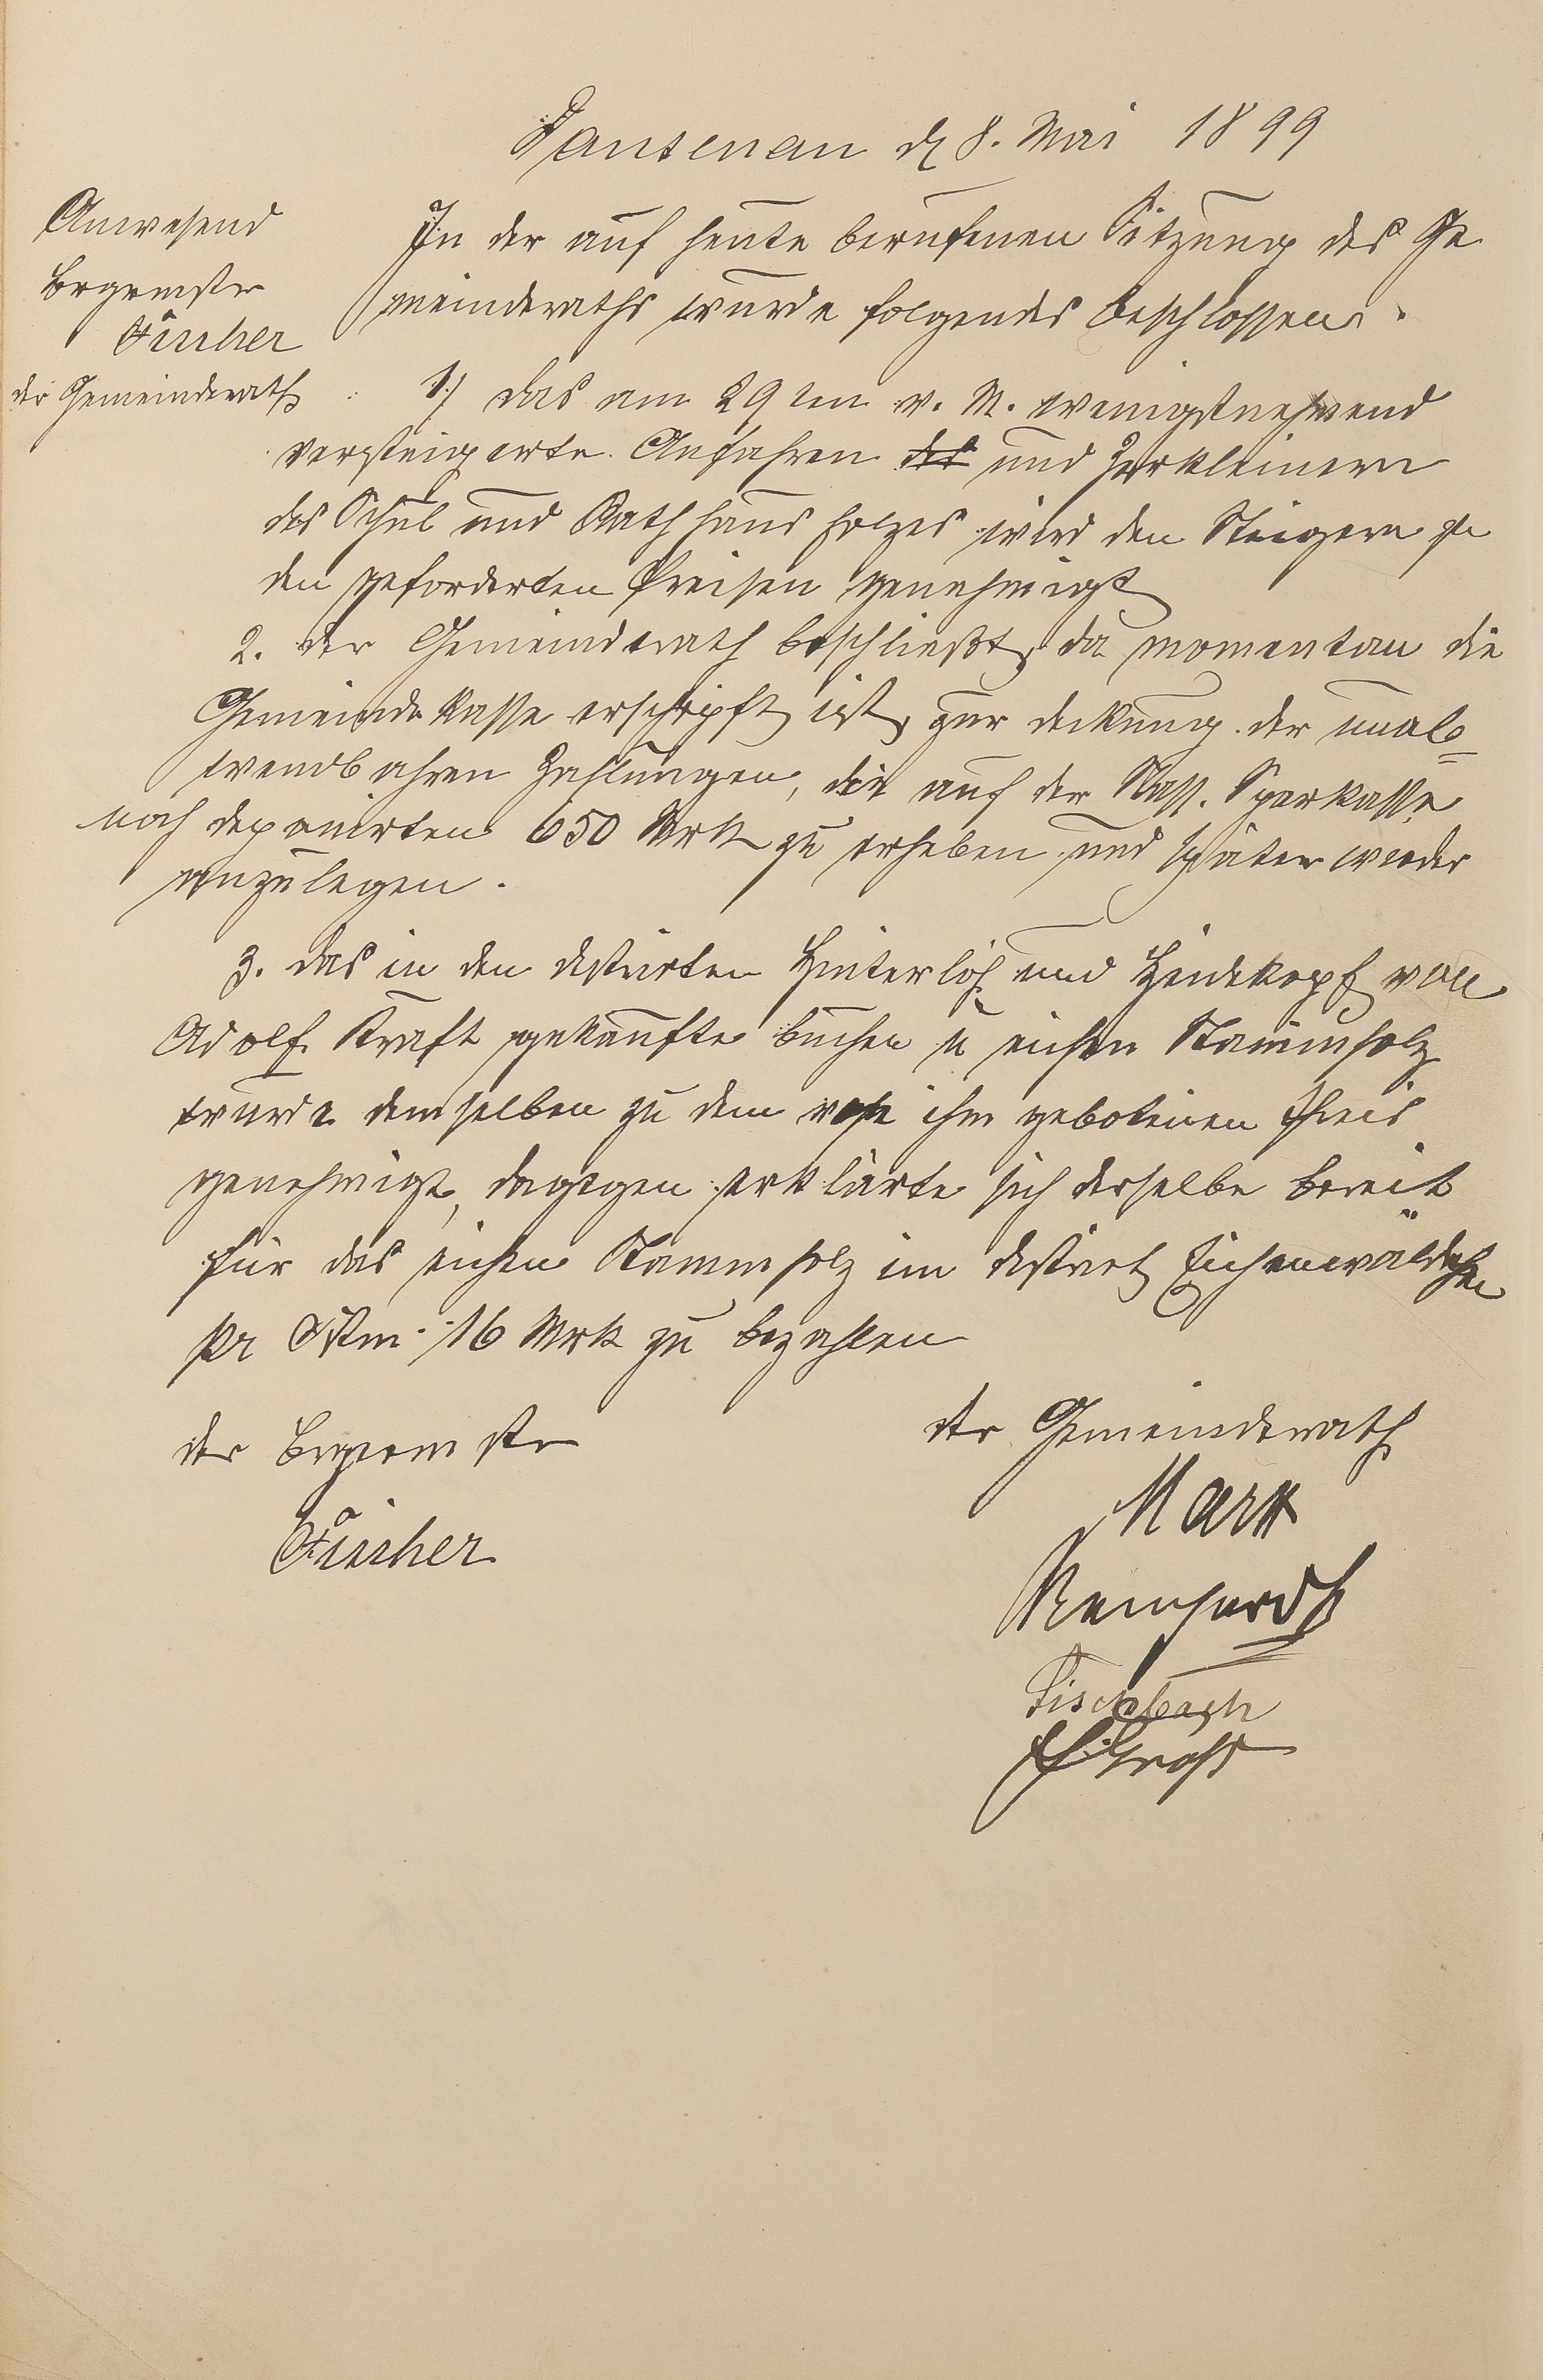 Dausenau d 8. Mai 1899
Anwesend
Brgrmstr
Fischer
der Gemeinderath
In der auf heute berufenen Sitzung des Ge
meinderaths wurde folgendes beschlossen.
1.) das am 29ten v. M. wenigstnehmend
versteigerte Anfahren des und Zerkleinern
des Schul und Rathhaus holzes wird den Steigern zu
den geforderten Preisen genehmigt
2. der Gemeinderath beschließt, da momentan die
Gemeindekasse erschöpft ist, zur deckung der unab=
wendbahren Zahlungen, die auf der Nass. Sparkasse
noch deponirten 650 Mrk zu erheben und später wieder
anzulegen.
3. das in den distrikten Hinterloh und Heidekopf von
Adolf Kraft gekaufte buchen u eichen Stammholz
wurde demselben zu dem von ihm gebotenen Preis
genehmigt, dagegen erklärte sich derselbe bereit
für das eichen Stammholz im distrikt Eichenwäldchen
pr Fstm 16 Mrk zu bezahlen
der Brgrmstr
Fischer
der Gemeinderath
Mark
Reinhardt
Fischbach
Groß